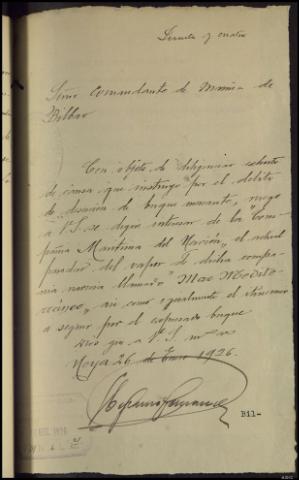 Sesenta y cuatro
Señor Comandante de Marina de
Bilbao
Con objeto de diligenciar exhorto
de causa que instruyo por el delito
de deserción de buque mercante, ruego
a V.S. se digne interesar de la Com-
pañía Maritima del Nervión, el actual
parador del vapor de dicha compa-
ñia llamado "Mar
así como igualmente el itinerario
a seguir por el expresado buque
Dios gue a V.S. m^s a^s
26 de Enero 1926.
Bil-